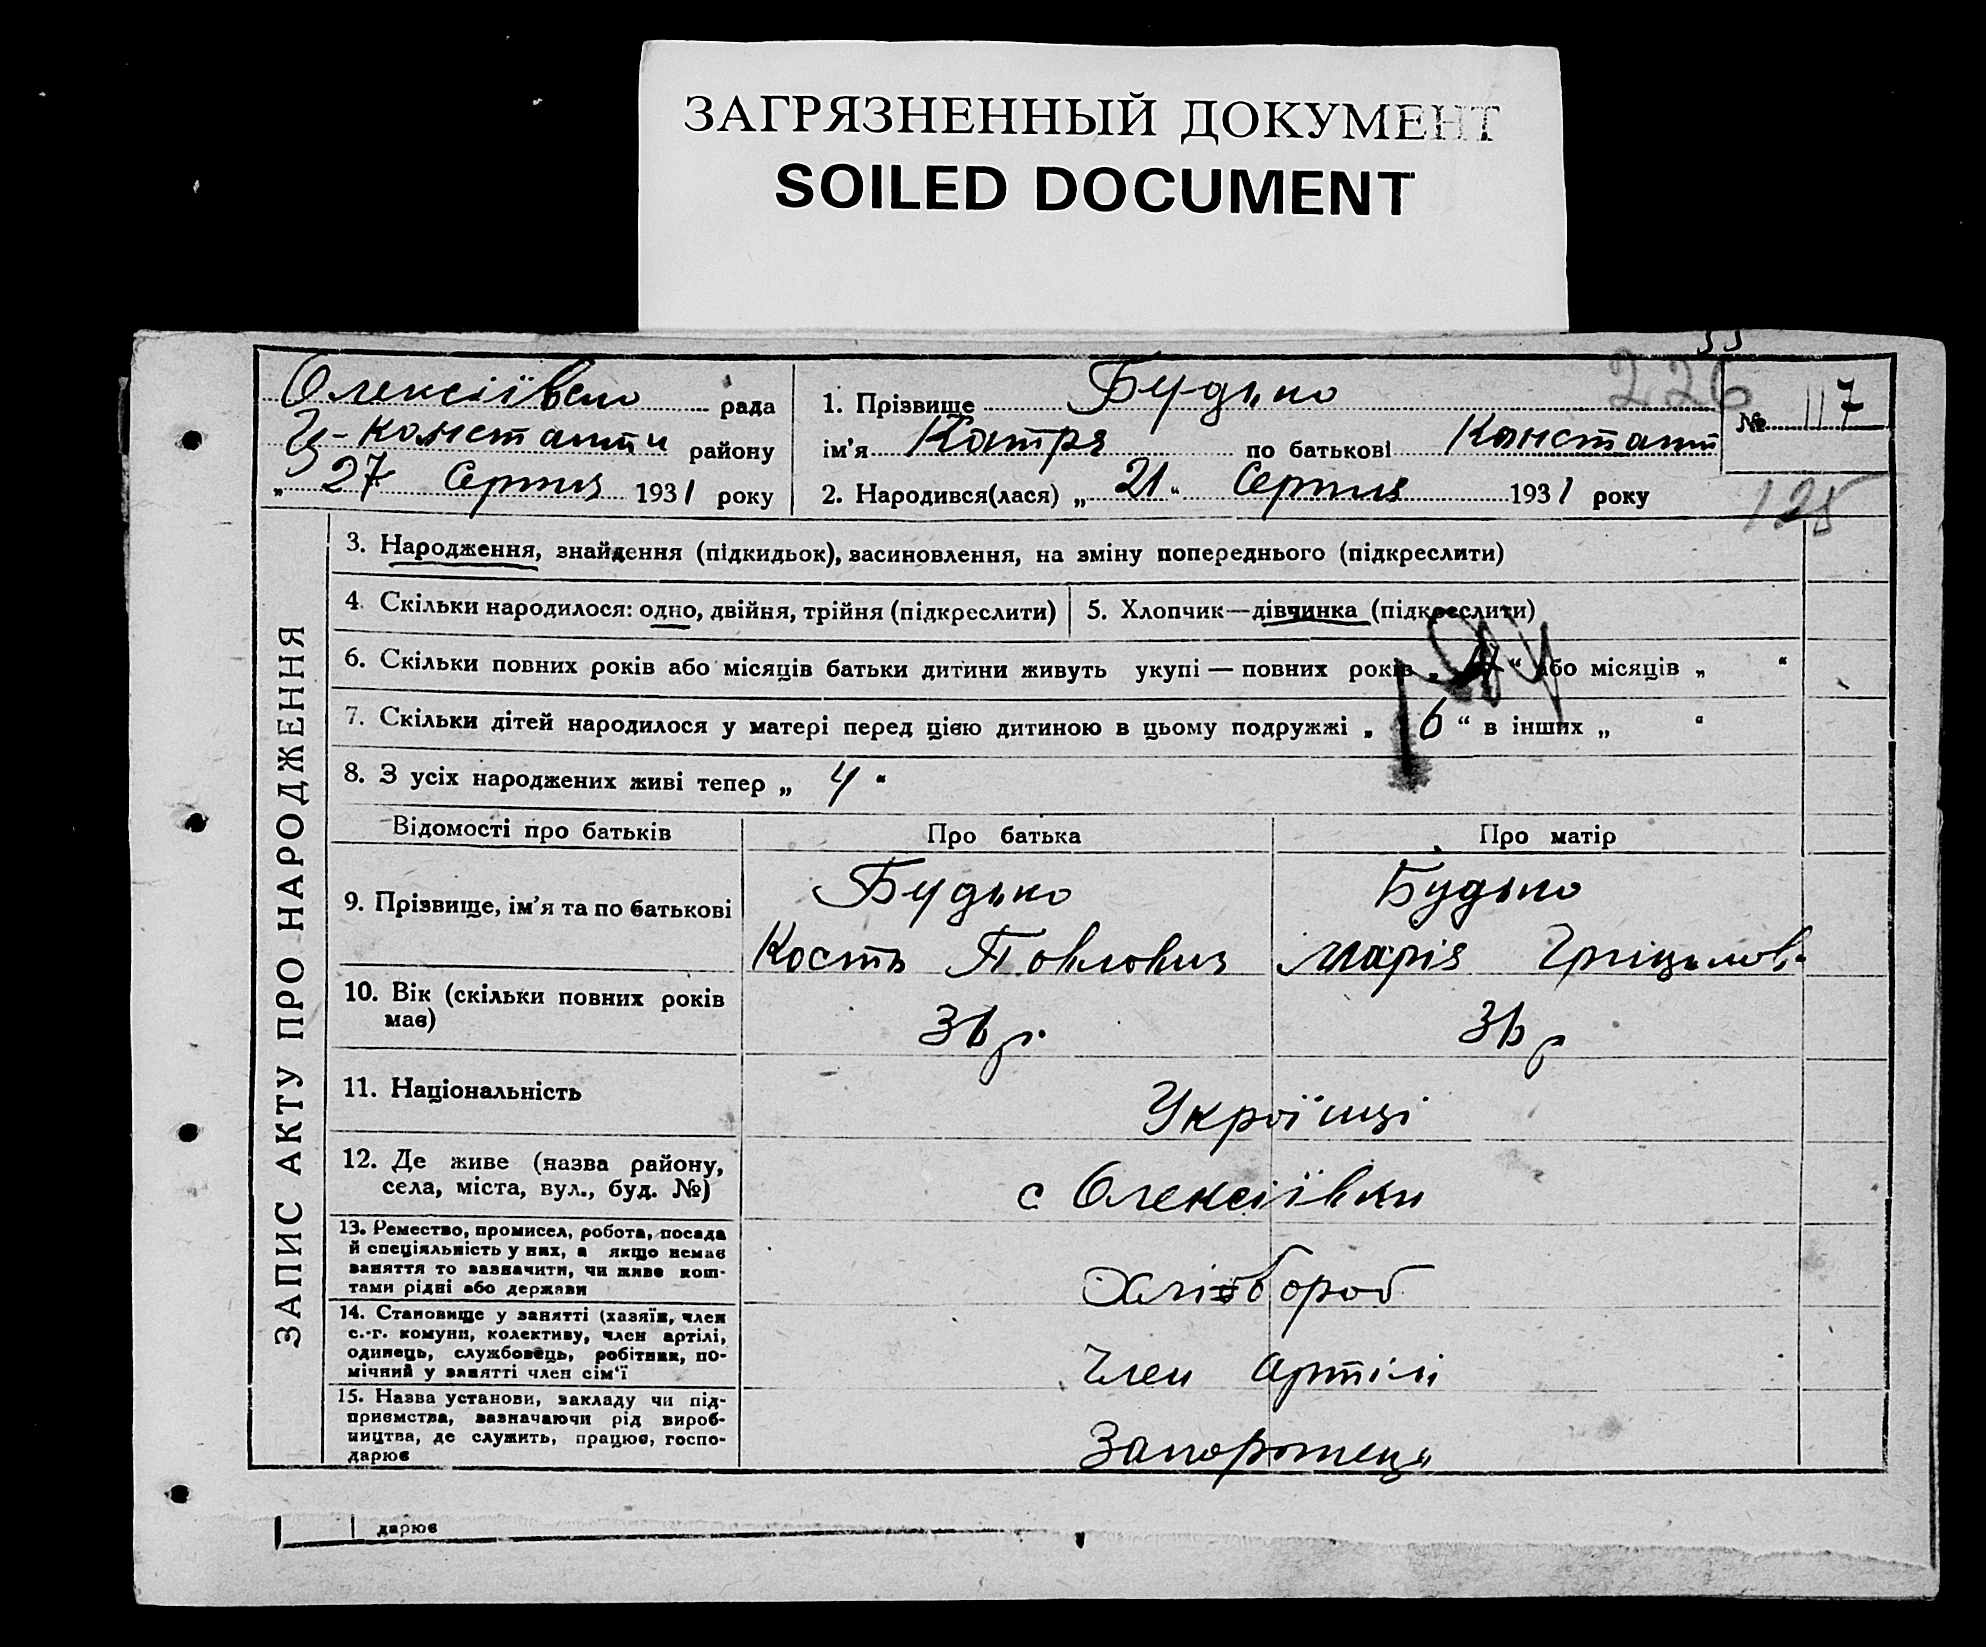 ЗАГРЯЗНЕННЫЙ ДОКУМЕНТ
SOILED DOCUMENT
Олексіївсько рада
Ц-Константи району
„ 27 Серпня 1931 року
1. Прізвище Будько
ім'я Катря по батькові Констант
2. Народився(лася) „ 21 “ Серпня 1931 року
226
№ 117
125
ЗАПИС АКТУ ПРО НАРОДЖЕННЯ
3. Народження, знайдення (підкидьок), засиновлення, на зміну попереднього (підкреслити)
4. Скільки народилося: одно, двійня, трійня (підкреслити)
5. Хлопчик—дівчинка (підкреслити)
6. Скільки повних років або місяців батьки дитини живуть укупі — повних років „ “ або місяців „ “
7. Скільки дітей народилося у матері перед цією дитиною в цьому подружжі „ 6 “ в інших „ “
8. З усіх народжених живі тепер „ 4 “
Відомості про батьків Про батька Про матір
9. Прізвище, ім'я та по батькові
Будько
Кость Павлович
Будько
Марія Грицьков.
10. Вік (скільки повних років
має)
36 р.
36 р
11. Національність
Українці
12. Де живе (назва району,
села, міста, вул., буд. №)
с Олексіївки
13. Ремество, промисел, робота, посада
й спеціяльність у них, а якщо немає
заняття то зазначити, чи живе кош-
тами рідні або держави
Хлібороб
14. Становище у занятті (хазяїн, член
с.-г. комуни, колективу, член артілі,
одинець, службовець, робітник, по-
мічний у занятті член сім'ї
Член артілі
15. Назва установи, закладу чи під-
приємства, зазначаючи рід вироб-
ництва, де служить, працює, госпо-
дарює
Запорожець
дарює